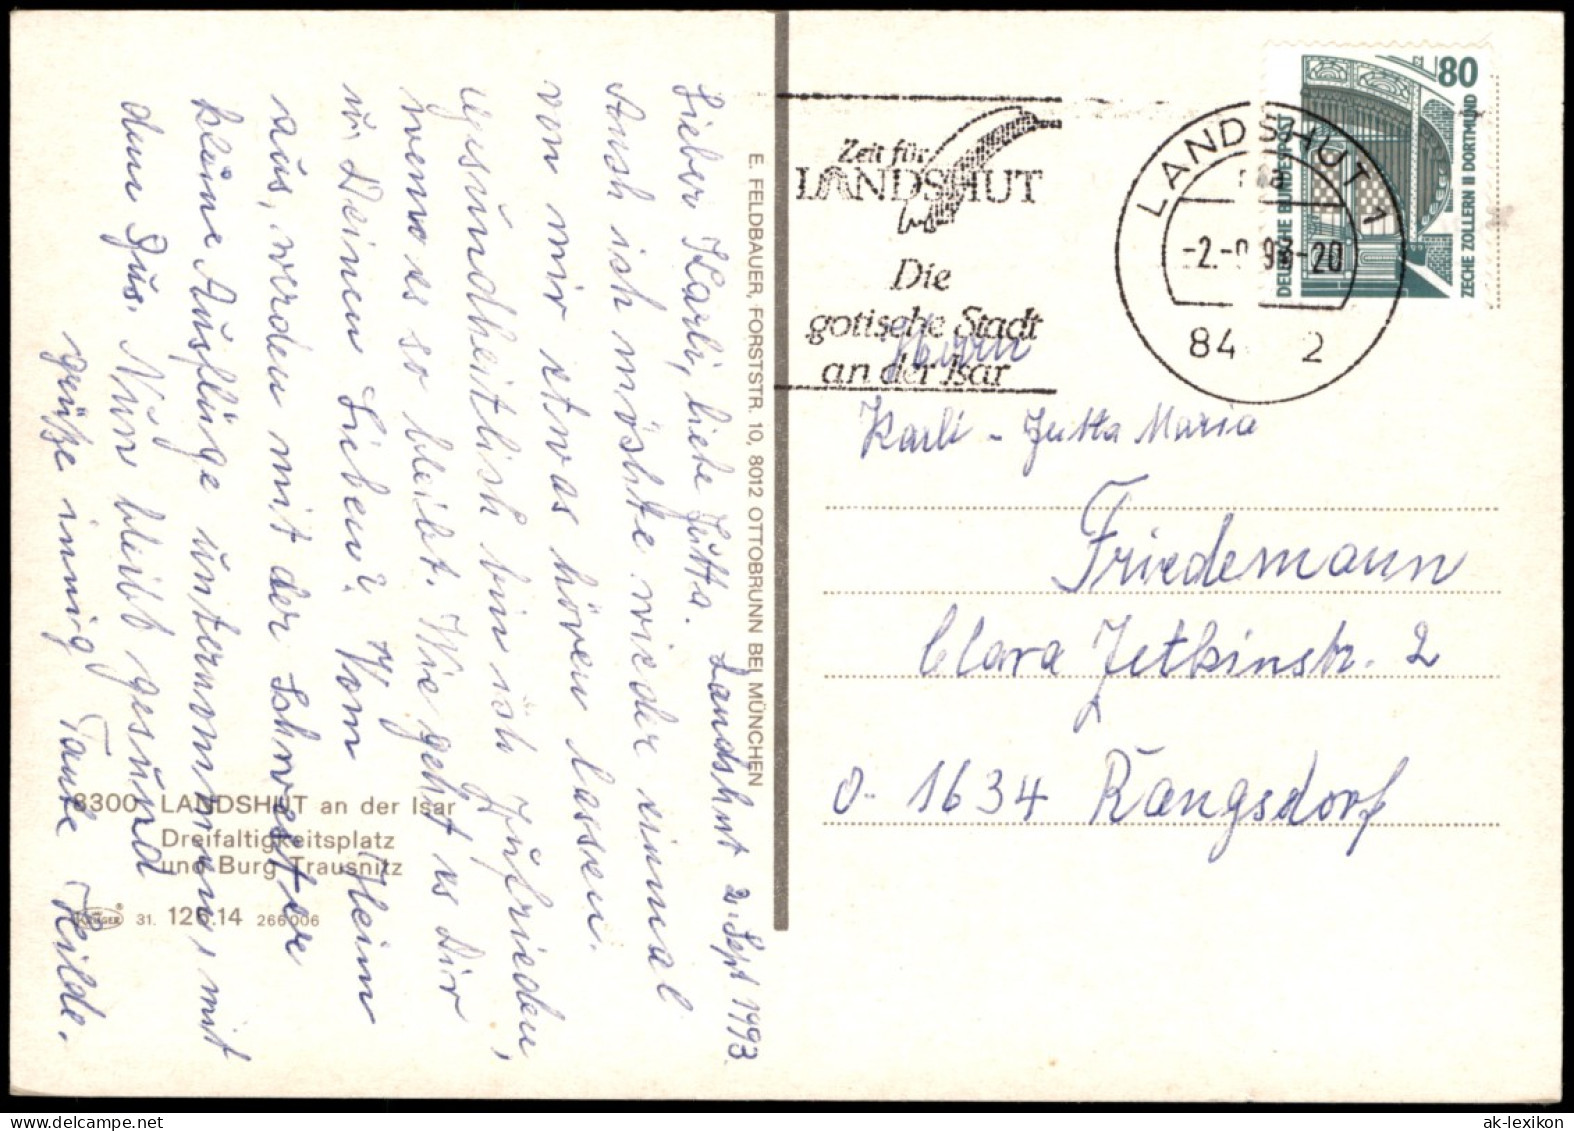 Lieber Karli, liebe Jutta. Landshut 2. Sept 1993
Auch ich möchte wieder einmal
von mir etwas hören lassen.
gesundheitlich bin ich zufrieden,
wenn es so bleibt. Wie geht es Dir
u. Deinen Lieben? Vom Heim
aus, werden mit der Schwester
kleine Ausflüge unternommen, mit
dem Bus. Nun bleibt gesund
grüße innig Tante Hilde.
8300 LANDSHUT an der Isar
Dreifaltigkeitsplatz
und Burg Trausnitz
KRÜGER 31. 126.14 266006
E. FELDBAUER, FORSTSTR. 10, 8012 OTTOBRUNN BEI MÜNCHEN
Zeit für
LANDSHUT
Die
gotische Stadt
an der Isar
LANDSHUT 1
-2.-9.93-20
84 2
80
DEUTSCHE BUNDESPOST
ZECHE ZOLLERN II DORTMUND
Herrn
Karli - Jutta Maria
Friedemann
Clara Zetkinstr. 2
O-1634 Rangsdorf
ak-lexikon